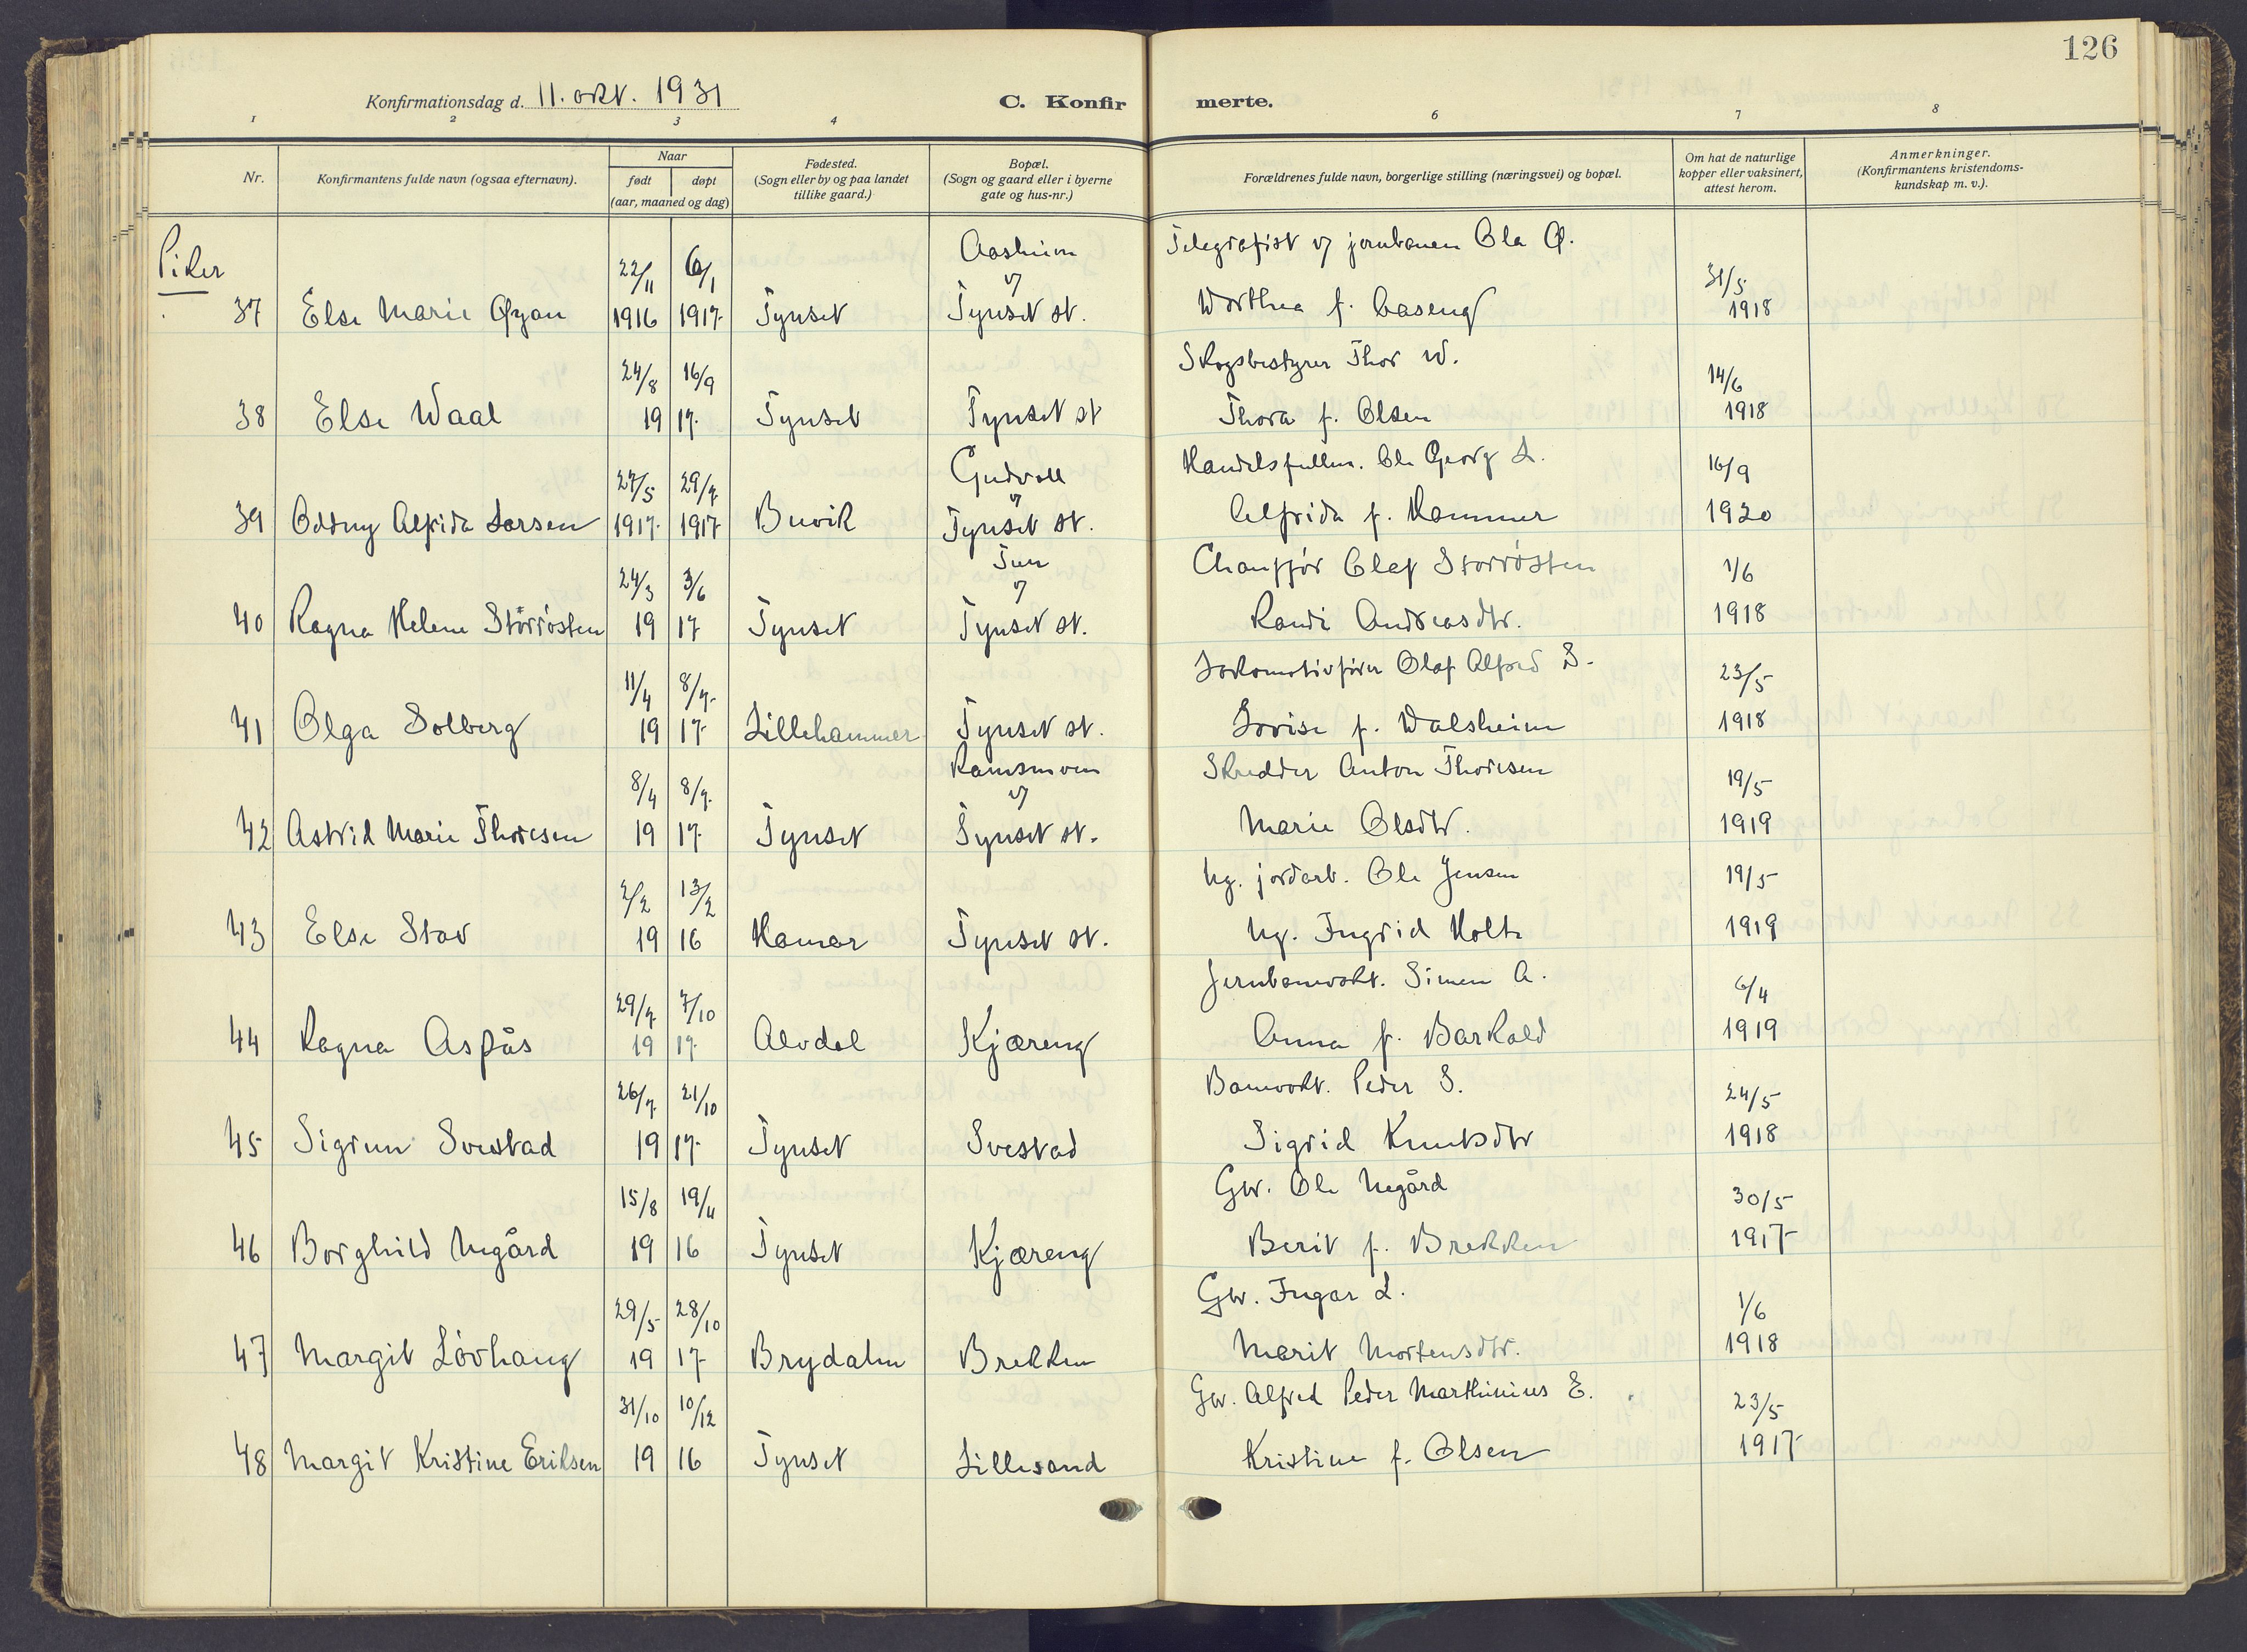 126
Konfirmationsdag d. 11. okt. 1931
C. Konfir merte.
1 2 3 4 6 7 8
Nr.
Konfirmantens fulde navn (ogsaa efternavn).
Naar
født døpt
(aar, maaned og dag)
Fødested.
(Sogn eller by og paa landet
tillike gaard.)
Bopæl.
(Sogn og gaard eller i byerne
gate og hus-nr.)
Forældrenes fulde navn, borgerlige stilling (næringsvei) og bopæl.
Om hat de naturlige
kopper eller vaksinert,
attest herom.
Anmerkninger.
(Konfirmantens kristendoms-
kundskap m. v.).
Piker
22/11 6/1 Aasheim Telegrafist v/ jernbanen Ola Ø. 31/5
v/
37 Else Marie Øyan 1916 1917 Tynset Tynset st. Dorthea f. Aaseng 1918
24/8 16/9 Skogsbestyrer Thor W. 14/6
38 Else Waal 19 17 Tynset Tynset st Thora f. Olsen 1918
27/5 29/7 Gudvoll Handelsfullm. Ole Georg L. 16/9
v/
39 Oddny Alfrida Larsen 1917 1917 Buvik Tynset st. Alfrida f. Hammer 1920
24/3 3/6 Tun Chauffør Olaf Storrøsten 1/6
v/
40 Ragna Helene Storrøsten 19 17 Tynset Tynset st. Randi Andreasdtr. 1918
11/4 8/7 Lokomotivfører Olaf Alfred S. 23/5
41 Olga Solberg 19 17 Lillehammer Tynset st. Lovise f. Dalsheim 1918
8/4 8/7 Ramsmoen Skredder Anton Thoresen 19/5
v/
42 Astrid Marie Thoresen 19 17 Tynset Tynset st. Marie Olsdtr. 1919
2/2 13/2 Ug. jordarb. Ole Jensen 19/5
43 Else Stav 19 16 Hamar Tynset st. Ug. Ingrid Holte 1919
29/7 7/10 Jernbanevokt. Simen A. 6/4
44 Ragna Aspås 19 17 Alvdal Kjæreng Anna f. Barkald 1919
26/7 21/10 Banevokt. Peder S. 24/5
45 Sigrun Svestad 19 17 Tynset Svestad Sigrid Knutsdtr 1918
15/8 19/11 Gbr. Ole Negård 30/5
46 Borghild Negård 19 16 Tynset Kjæreng Berit f. Brekken 1917
29/5 28/10 Gbr. Ingar L. 1/6
47 Margit Løvhaug 19 17 Brydalen Brekken Marit Mortensdtr. 1918
31/10 10/12 Gbr. Alfred Peder Marthinius E. 23/5
48 Margit Kristine Eriksen 19 16 Tynset Lillesand Kristine f. Olsen 1917